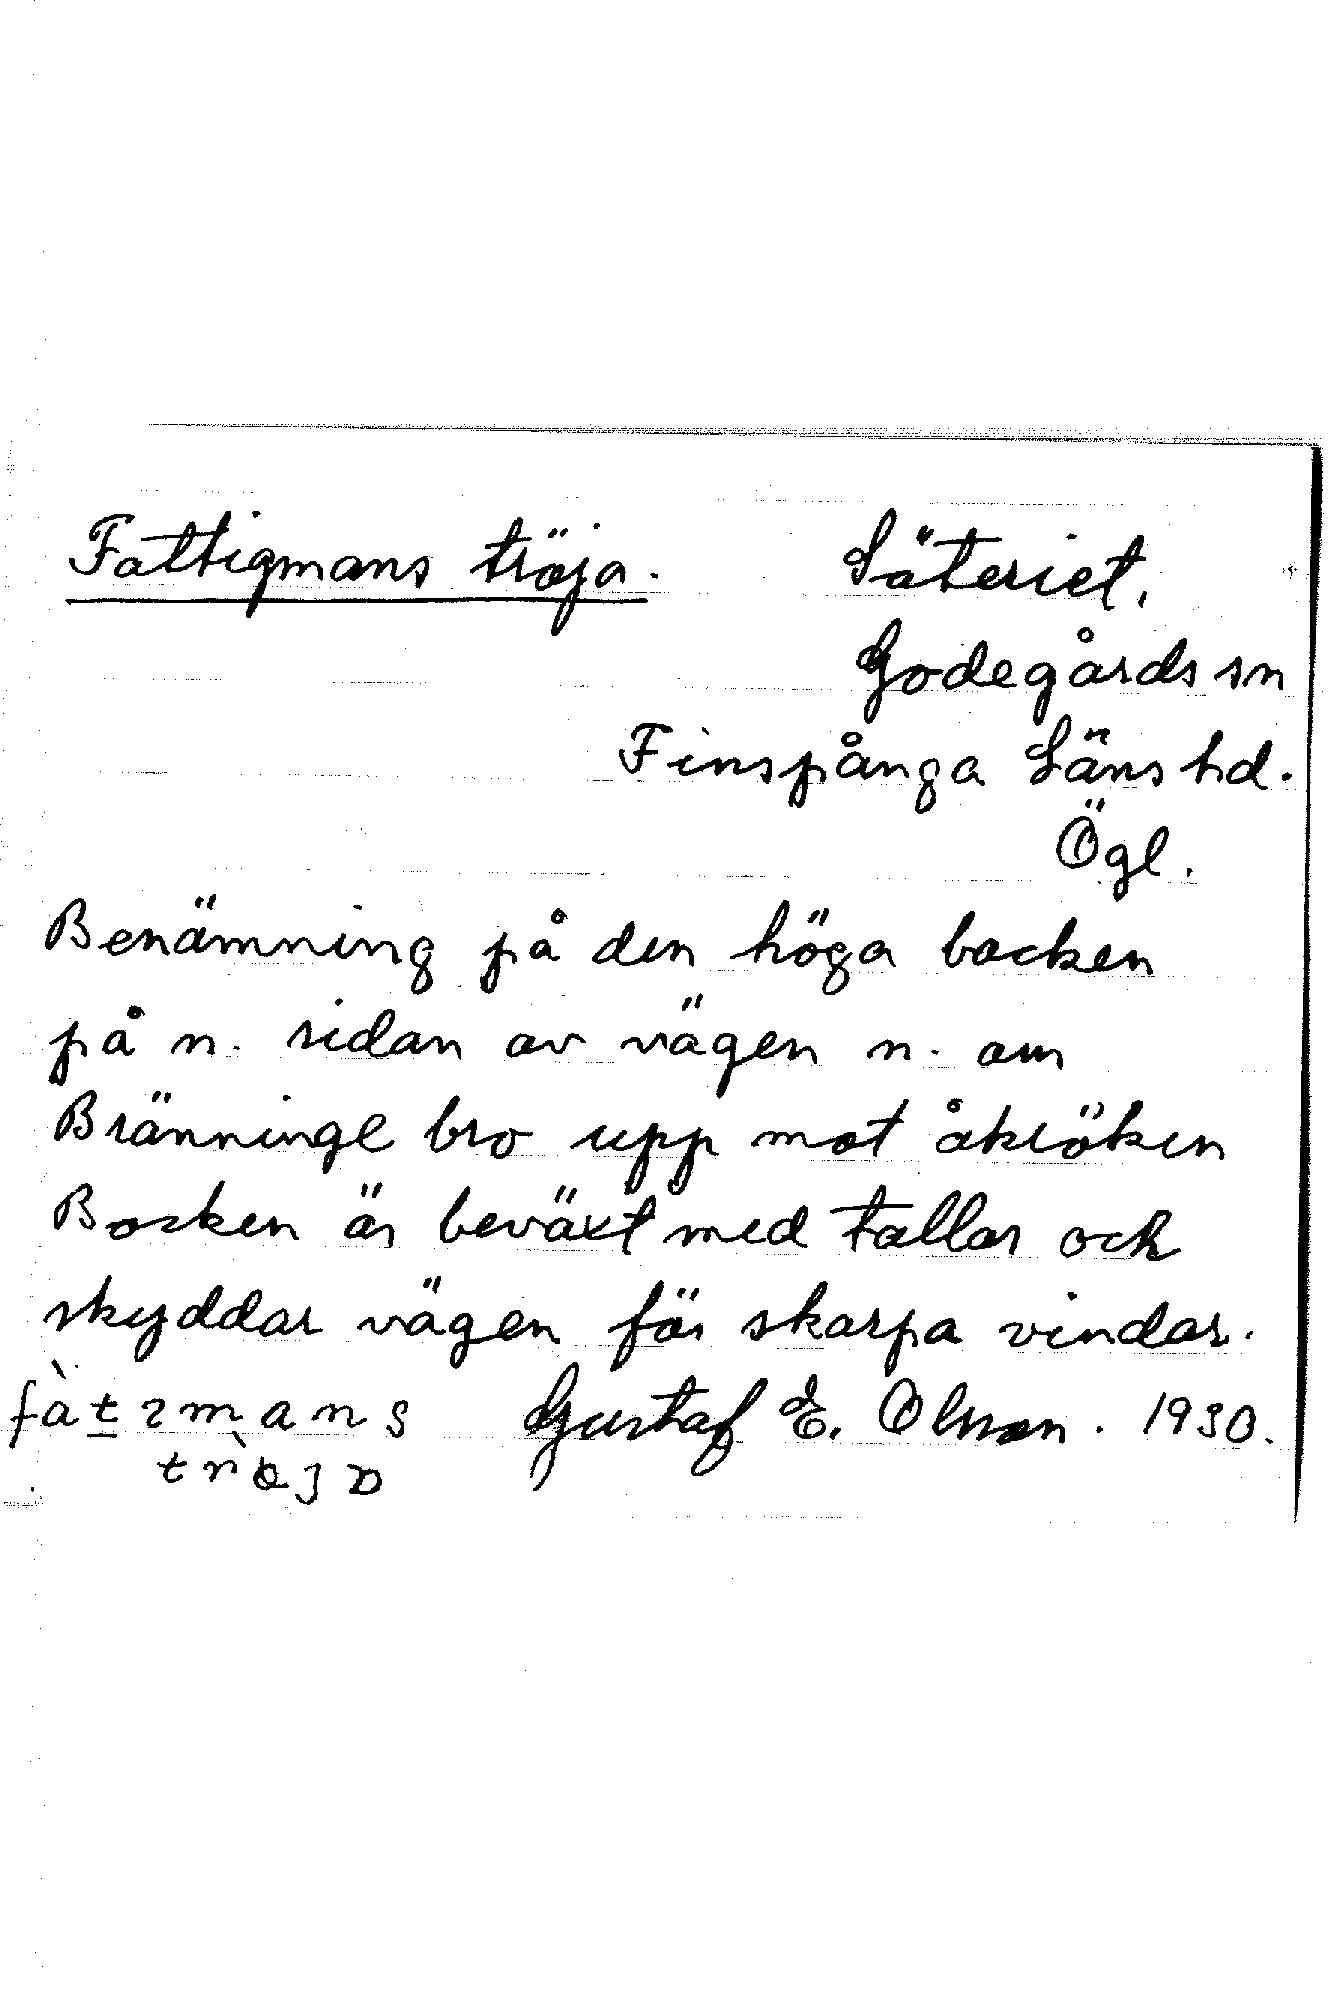 Fattigmans tröja. Säteriet,
Godegårds sn
Finspånga Läns hd.
Ögl.
Benämning på den höga backen
på n. sidan av vägen n. om
Bränninge bro upp mot åkröken
Backen är beväxt med tallar och
skyddar vägen för skarpa vindar.
Gustaf E. Olsson. 1930.